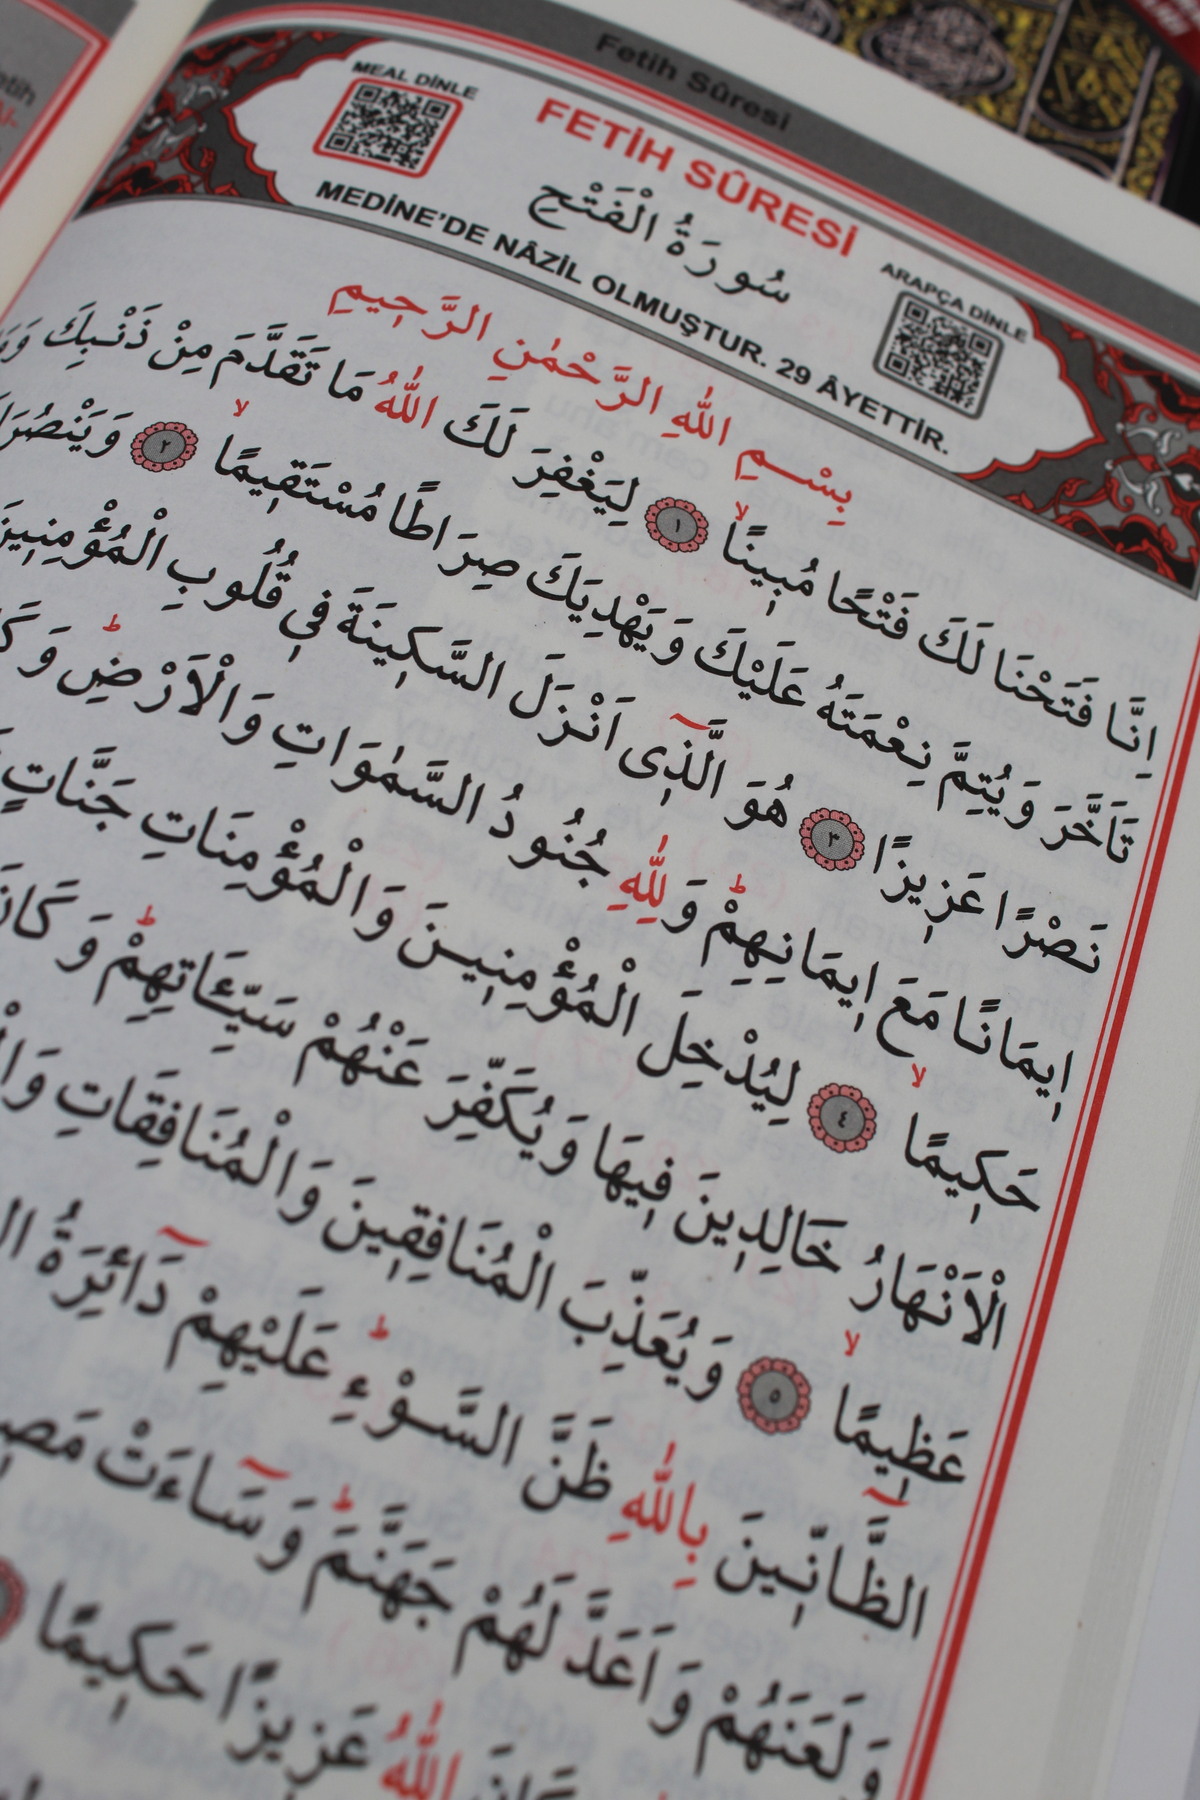 Fetih Sûresi
MEAL DİNLE
FETİH SÛRESİ
سُورَةُ الْفَتْحِ
ARAPÇA DİNLE
MEDİNE'DE NÂZİL OLMUŞTUR. 29 ÂYETTİR.
بِسْمِ اللّٰهِ الرَّحْمٰنِ الرَّحِيمِ
اِنَّا فَتَحْنَا لَكَ فَتْحًا مُبِينًاۙ ١ لِيَغْفِرَ لَكَ اللّٰهُ مَا تَقَدَّمَ مِنْ ذَنْبِكَ
تَاَخَّرَ وَيُتِمَّ نِعْمَتَهُ عَلَيْكَ وَيَهْدِيَكَ صِرَاطًا مُسْتَقِيمًاۙ ٢
نَصْرًا عَزِيزًا ٣ هُوَ الَّذِٓى اَنْزَلَ السَّكِينَةَ فِى قُلُوبِ الْمُؤْمِنِينَ
اِيمَانًا مَعَ اِيمَانِهِمْۜ وَلِلّٰهِ جُنُودُ السَّمٰوَاتِ وَالْاَرْضِۜ
حَكِيمًاۙ ٤ لِيُدْخِلَ الْمُؤْمِنِينَ وَالْمُؤْمِنَاتِ جَنَّاتٍ
الْاَنْهَارُ خَالِدِينَ فِيهَا وَيُكَفِّرَ عَنْهُمْ سَيِّـَٔاتِهِمْۜ وَكَانَ
عَظِيمًاۙ ٥ وَيُعَذِّبَ الْمُنَافِقِينَ وَالْمُنَافِقَاتِ
الظَّٓانِّينَ بِاللّٰهِ ظَنَّ السَّوْءِۜ عَلَيْهِمْ دَٓائِرَةُ
وَلَعَنَهُمْ وَاَعَدَّ لَهُمْ جَهَنَّمَۜ وَسَٓاءَتْ
اللّٰهُ عَزِيزًا حَكِيمًا